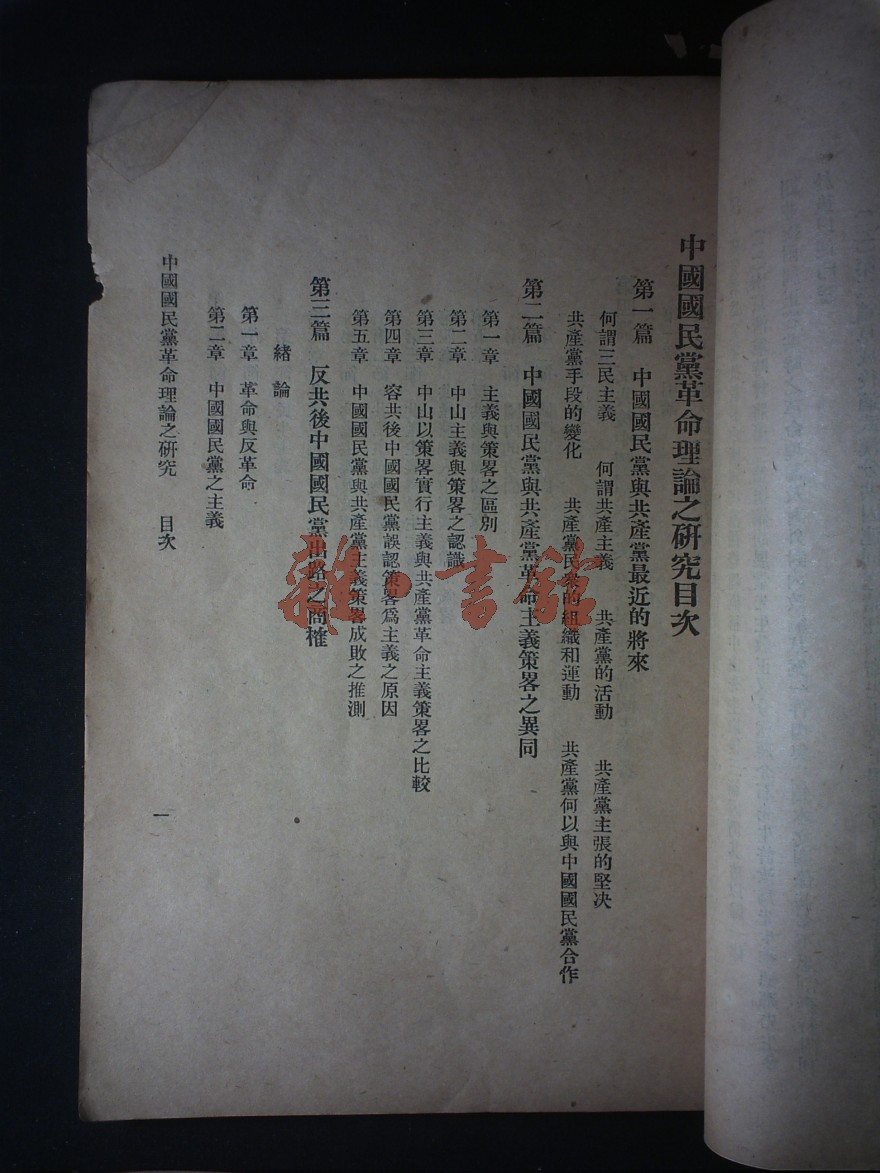 中國國民黨革命理論之研究目次
第一篇　中國國民黨與共產黨最近的將來
何謂三民主義　何謂共產主義　共產黨的活動　共產黨主張的堅决
共產黨手段的變化　共產黨民衆的組織和運動　共產黨何以與中國國民黨合作
第二篇　中國國民黨與共產黨革命主義策畧之異同
第一章　主義與策畧之區別
第二章　中山主義與策畧之認識
第三章　中山以策畧實行主義與共產黨革命主義策畧之比較
第四章　容共後中國國民黨誤認策畧爲主義之原因
第五章　中國國民黨與共產黨主義策畧成敗之推測
第三篇　反共後中國國民黨出路之商榷
緒論
第一章　革命與反革命
第二章　中國國民黨之主義
中國國民黨革命理論之研究　目次
一
雜·書館